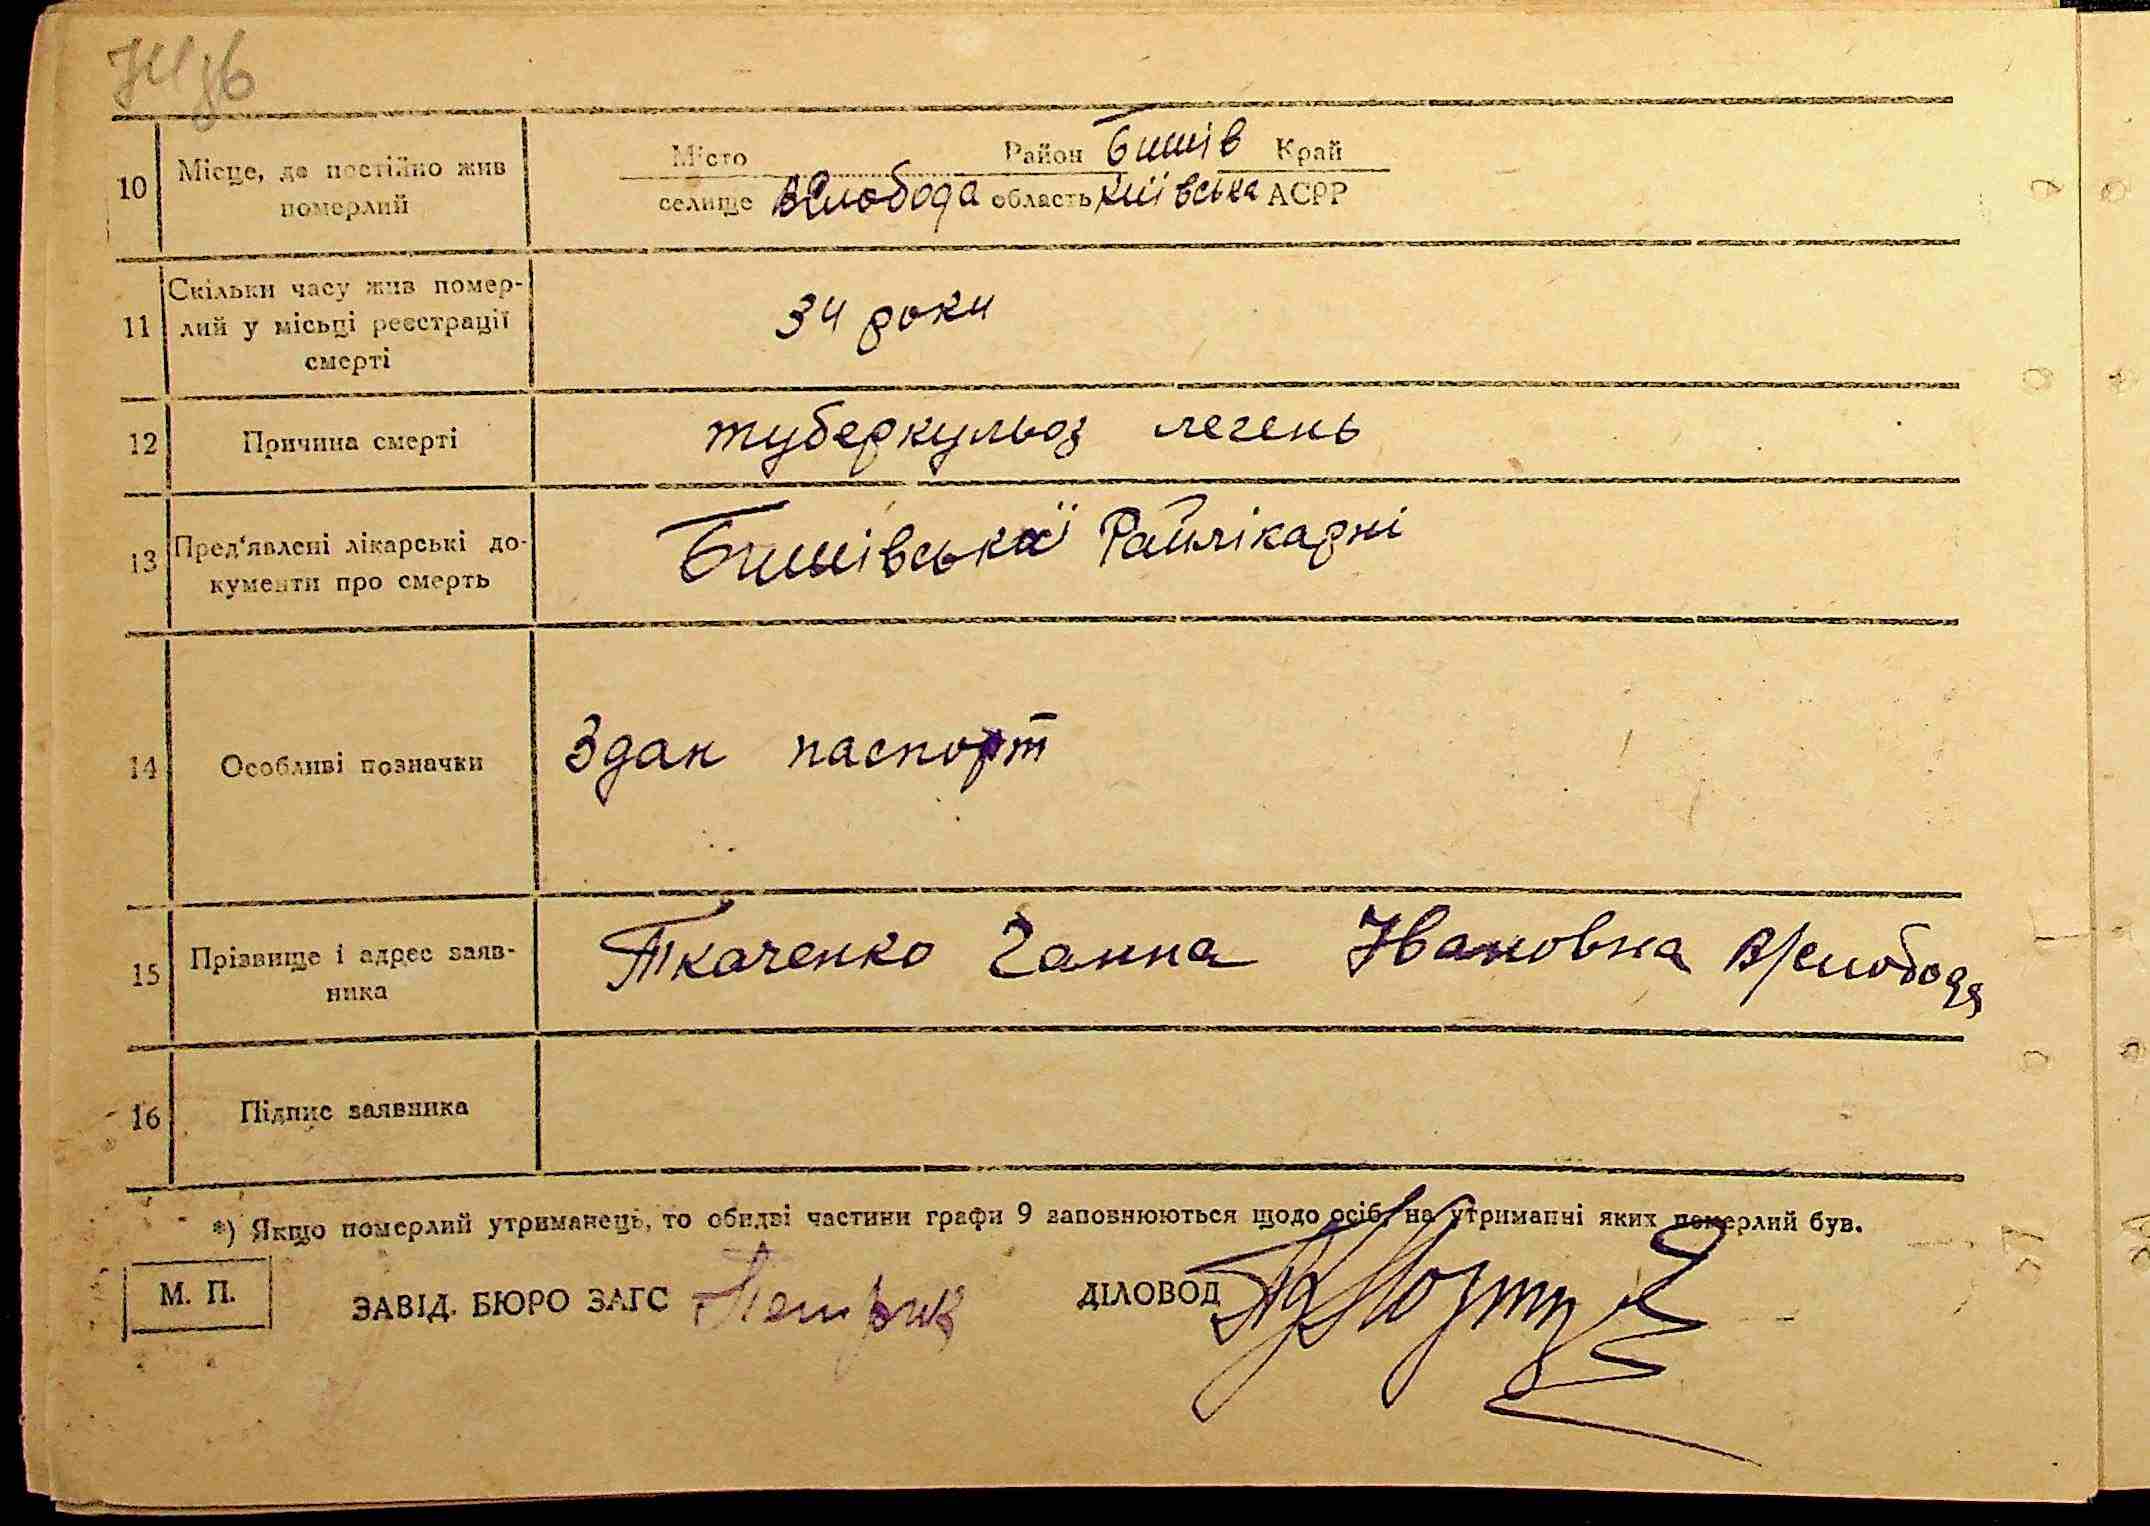 10 Місце, де постійно жив
померлий
Місто Район Бишів Край
селище ВСлобода область Київська АСРР
11 Скільки часу жив помер-
лий у місьці реєстрації
смерті
34 роки
12 Причина смерті туберкульоз легень
13 Пред'явлені лікарські до-
кументи про смерть
Бишівської Райлікарні
14 Особливі позначки Здан паспорт
15 Прізвище і адрес заяв-
ника
Ткаченко Ганна Івановна В/Слобода
16 Підпис заявника
*) Якщо померлий утриманець, то обидві частини графи 9 заповнюються щодо осіб, на утриманні яких померлий був.
М. П. ЗАВІД. БЮРО ЗАГС Петрик ДІЛОВОД